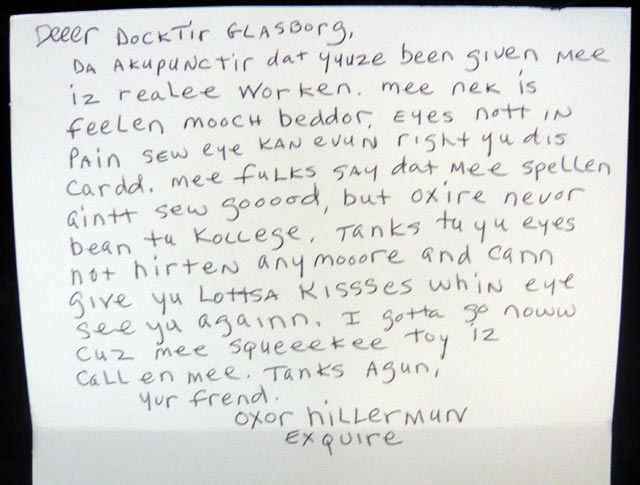 Deeer DockTir GLASBORG,
DA AkupuNctir dat yyuze been given mee
iz realee worken. mee nek is
feelen mooch beddor. Eyes nott iN
PAin sew eye KAN evun right yu dis
Cardd. mee fuLKS SAy dat mee spellen
aintt sew gooood, but oxire nevor
bean tu Kollege. Tanks tu yu eyes
not hirten any mooore and cann
give yu LottsA Kissses whiN eye
see yu againn. I gotta go noww
cuz mee squeeekee toy iz
CaLL en mee. Tanks Agun,
yur frend.
oxor hiLLermuN
Exquire